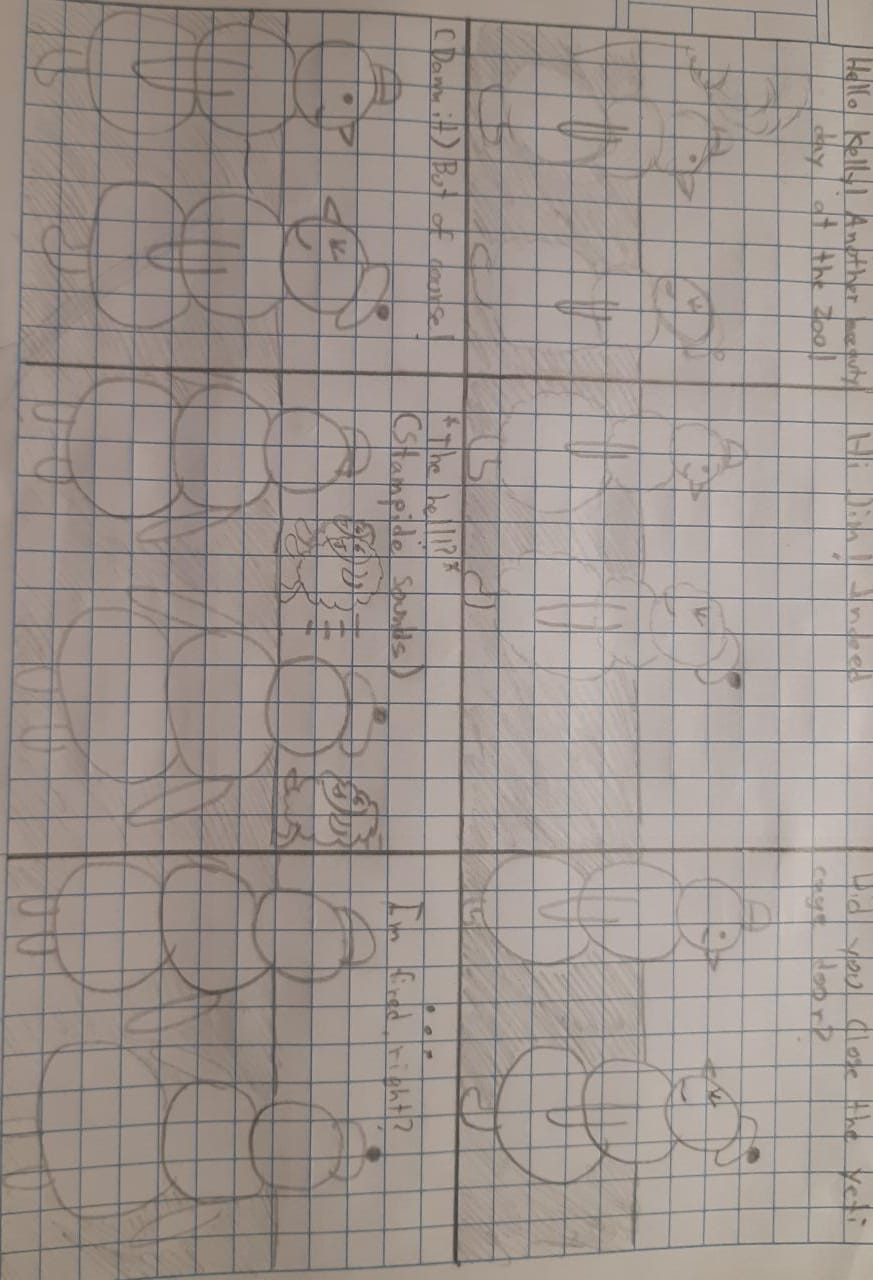 Hello Kelly! Another beauty
day at the zoo!
Hi Jim! Indeed
Did you close the yeti
cage door?
(Damn it) But of course!
*the hell!?*
(Stampide sounds)
...
I'm fired, right?